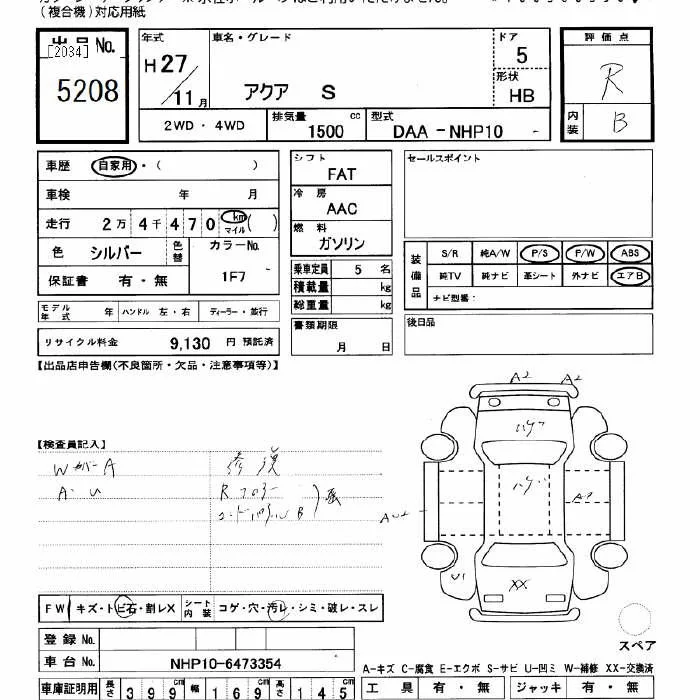 (複合機)対応用紙
出品 No.
[2034]
5208
年式
H 27/11 月
車名・グレード
アクア S
ドア
5
形状
HB
評価点
R
内装
B
2WD ・ 4WD
排気量
1500 cc
型式
DAA -NHP10 -
車歴 自家用・( )
車検 年 月
走行 2万 4千 4 7 0 km マイル ( )
色 シルバー 色替 カラーNo.
保証書 有・無 1F7
モデル年式 年 ハンドル 左・右 ディーラー・並行
リサイクル料金 9,130 円 預託済
シフト
FAT
冷房
AAC
燃料
ガソリン
乗車定員 5 名
積載量 kg
総重量 kg
書類期限
月 日
セールスポイント
装備品
S/R 純A/W P/S P/W ABS
純TV 純ナビ 革シート 外ナビ エアB
ナビ型番:
後日品
【出品店申告欄(不良箇所・欠品・注意事項等)】
【検査員記入】
W カバー A
A・U
修復
R フロアー
B
A2 A2
U1
XX
FW キズ・トビ石・割レX シート内装 コゲ・穴・汚レ・シミ・破レ・スレ
登録 No.
車台 No. NHP10-6473354
車庫証明用 長さ 399 cm 幅 169 cm 高さ 145 cm
スペア
A-キズ C-腐食 E-エクボ S-サビ U-凹ミ W-補修 XX-交換済
工具 有・無 ジャッキ 有・無